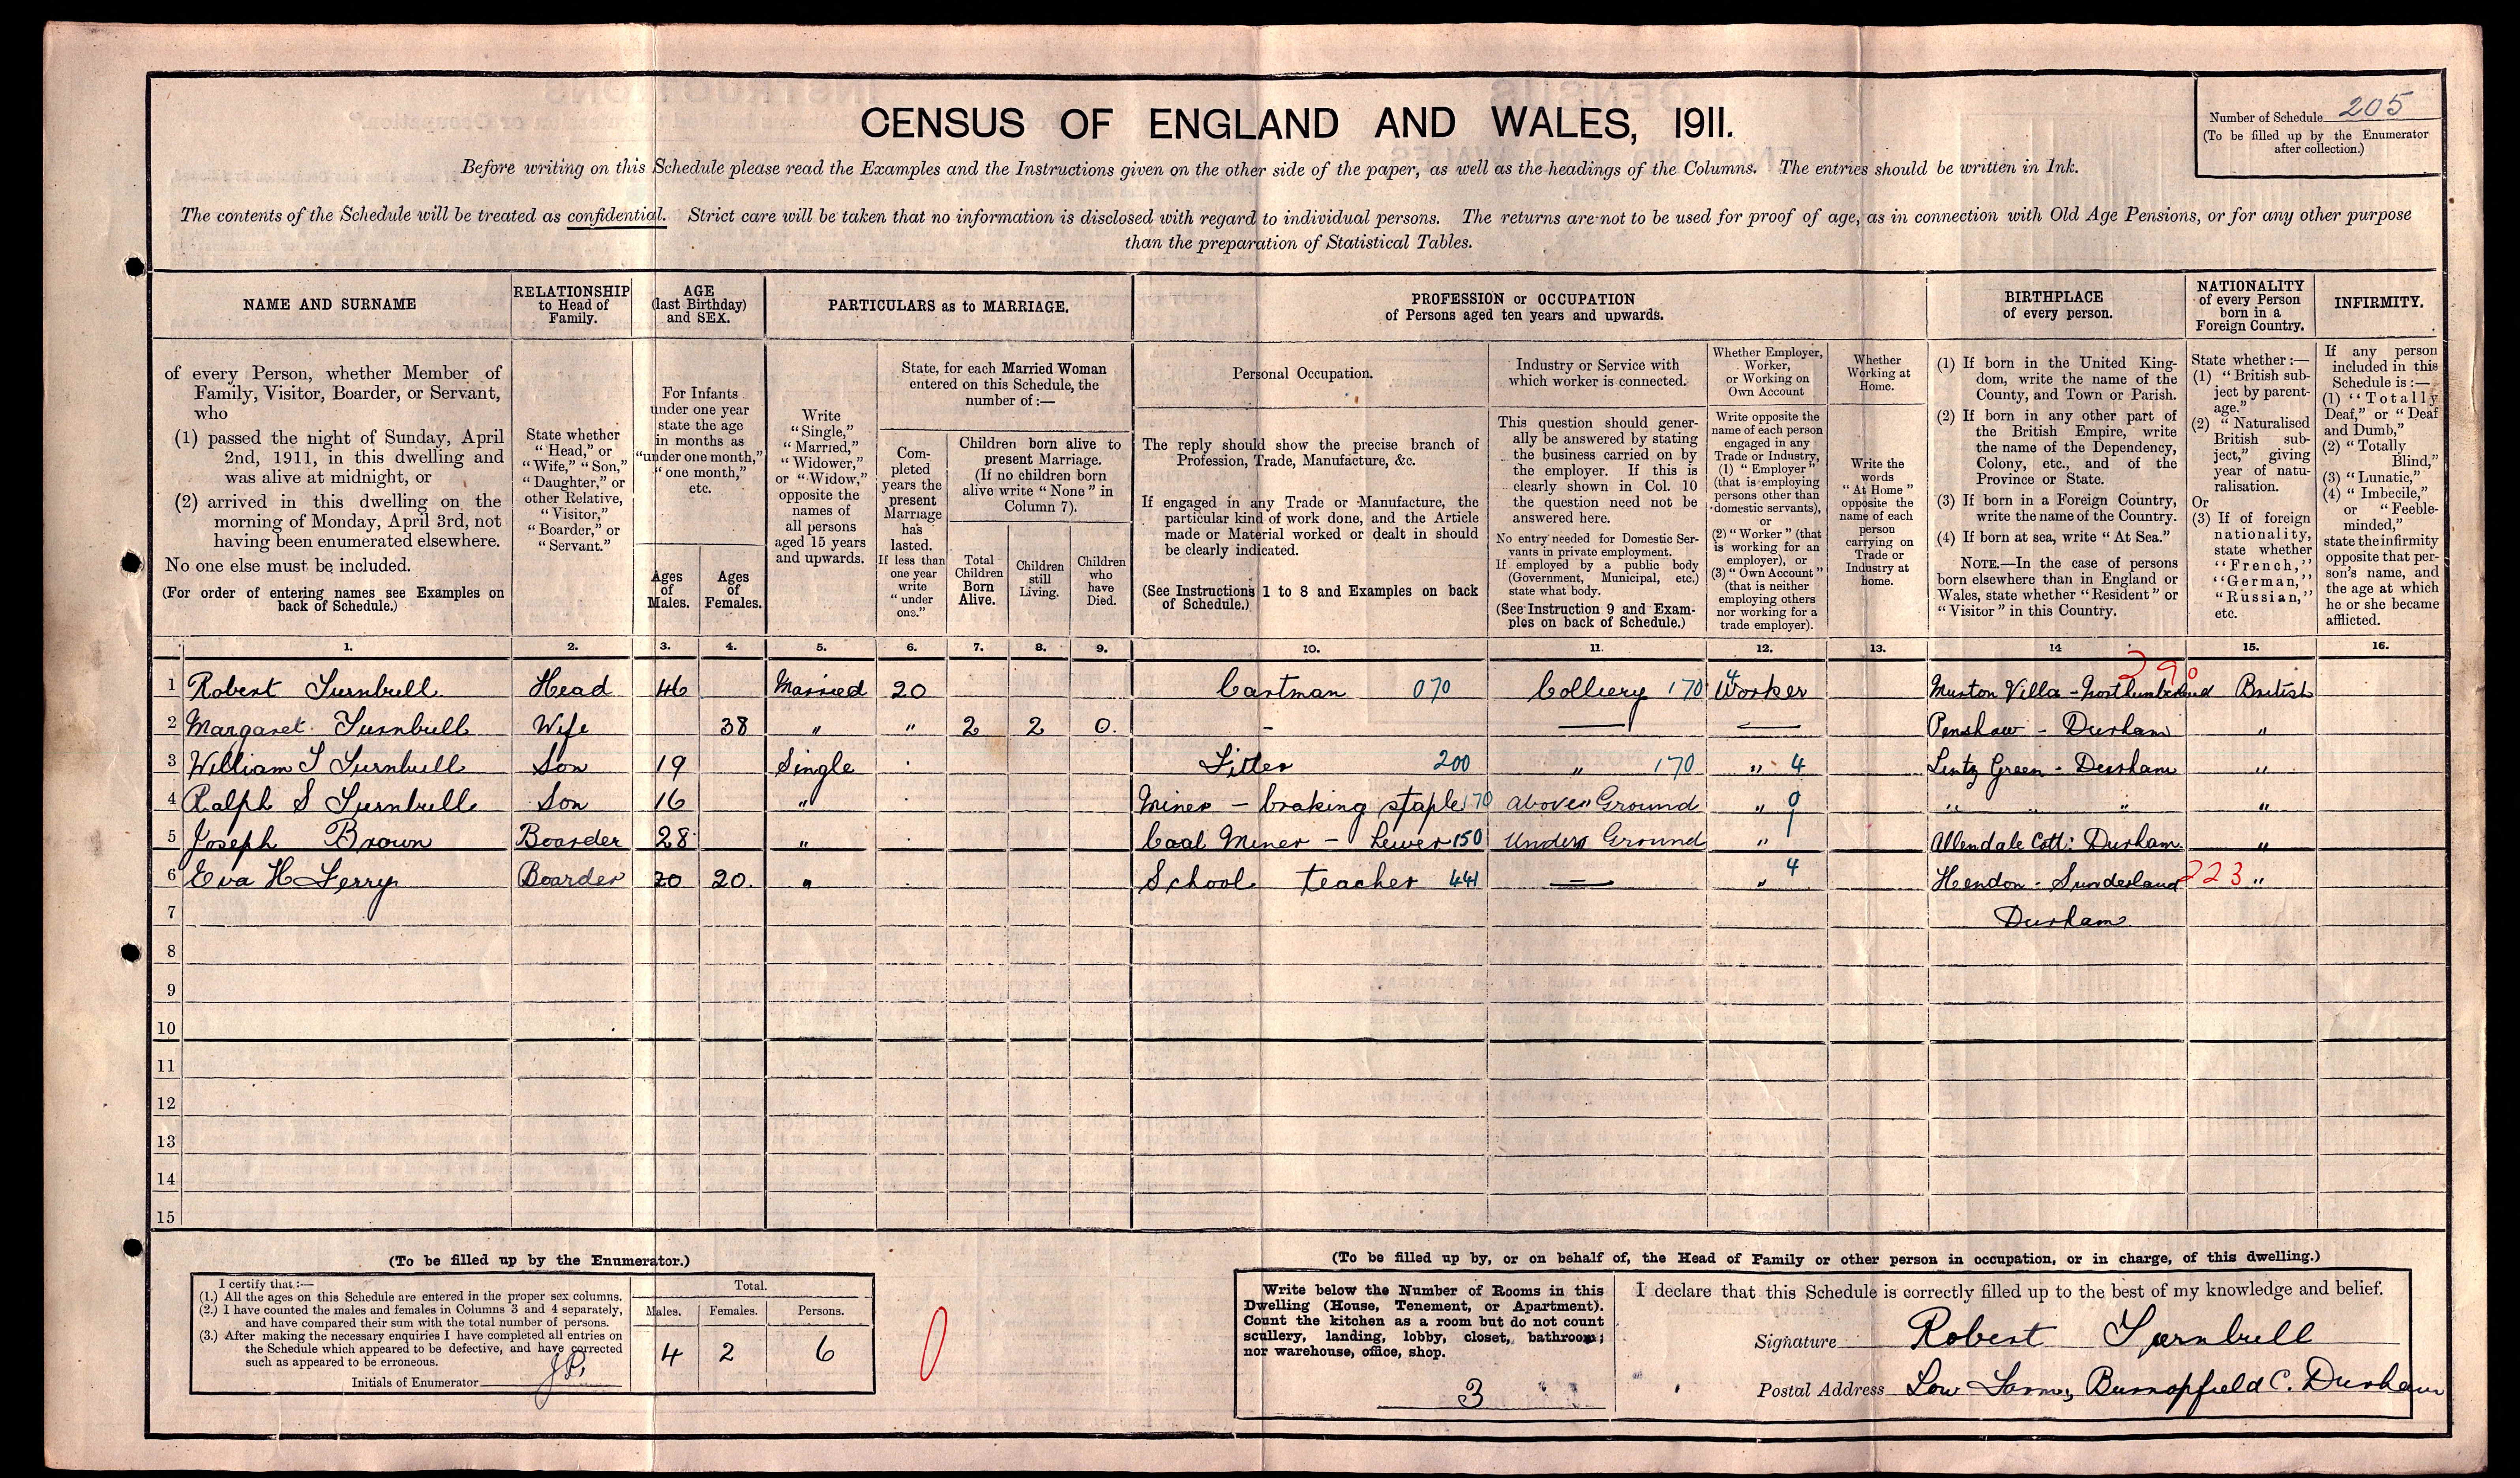 CENSUS OF ENGLAND AND WALES, 1911.
Number of Schedule 205
(To be filled up by the Enumerator
after collection.)
Before writing on this Schedule please read the Examples and the Instructions given on the other side of the paper, as well as the headings of the Columns. The entries should be written in Ink.
The contents of the Schedule will be treated as confidential. Strict care will be taken that no information is disclosed with regard to individual persons. The returns are not to be used for proof of age, as in connection with Old Age Pensions, or for any other purpose
than the preparation of Statistical Tables.
NAME AND SURNAME
of every Person, whether Member of
Family, Visitor, Boarder, or Servant,
who
(1) passed the night of Sunday, April
2nd, 1911, in this dwelling and
was alive at midnight, or
(2) arrived in this dwelling on the
morning of Monday, April 3rd, not
having been enumerated elsewhere.
No one else must be included.
(For order of entering names see Examples on
back of Schedule.)
RELATIONSHIP
to Head of
Family.
State whether
"Head," or
"Wife," "Son,"
"Daughter," or
other Relative,
"Visitor,"
"Boarder," or
"Servant."
AGE
(last Birthday)
and SEX.
For Infants
under one year
state the age
in months as
"under one month,"
"one month,"
etc.
Ages
of
Males.
Ages
of
Females.
PARTICULARS as to MARRIAGE.
Write
"Single,"
"Married,"
"Widower,"
or "Widow,"
opposite the
names of
all persons
aged 15 years
and upwards.
State, for each Married Woman
entered on this Schedule, the
number of:—
Com-
pleted
years the
present
Marriage
has
lasted.
If less than
one year
write
"under
one."
Children born alive to
present Marriage.
(If no children born
alive write "None" in
Column 7).
Total
Children
Born
Alive.
Children
still
Living.
Children
who
have
Died.
PROFESSION or OCCUPATION
of Persons aged ten years and upwards.
Personal Occupation.
The reply should show the precise branch of
Profession, Trade, Manufacture, &c.
If engaged in any Trade or Manufacture, the
particular kind of work done, and the Article
made or Material worked or dealt in should
be clearly indicated.
(See Instructions 1 to 8 and Examples on back
of Schedule.)
Industry or Service with
which worker is connected.
This question should gener-
ally be answered by stating
the business carried on by
the employer. If this is
clearly shown in Col. 10
the question need not be
answered here.
No entry needed for Domestic Ser-
vants in private employment.
If employed by a public body
(Government, Municipal, etc.)
state what body.
(See Instruction 9 and Exam-
ples on back of Schedule.)
Whether Employer,
Worker,
or Working on
Own Account
Write opposite the
name of each person
engaged in any
Trade or Industry,
(1) "Employer"
(that is employing
persons other than
domestic servants),
or
(2) "Worker" (that
is working for an
employer), or
(3) "Own Account"
(that is neither
employing others
nor working for a
trade employer).
Whether
Working at
Home.
Write the
words
"At Home"
opposite the
name of each
person
carrying on
Trade or
Industry at
home.
BIRTHPLACE
of every person.
(1) If born in the United King-
dom, write the name of the
County, and Town or Parish.
(2) If born in any other part of
the British Empire, write
the name of the Dependency,
Colony, etc., and of the
Province or State.
(3) If born in a Foreign Country,
write the name of the Country.
(4) If born at sea, write "At Sea."
NOTE.—In the case of persons
born elsewhere than in England or
Wales, state whether "Resident" or
"Visitor" in this Country.
NATIONALITY
of every Person
born in a
Foreign Country.
State whether:—
(1) "British sub-
ject by parent-
age."
(2) "Naturalised
British sub-
ject," giving
year of natu-
ralisation.
Or
(3) If of foreign
nationality,
state whether
"French,"
"German,"
"Russian,"
etc.
INFIRMITY.
If any person
included in this
Schedule is:—
(1) "Totally
Deaf," or "Deaf
and Dumb,"
(2) "Totally
Blind,"
(3) "Lunatic,"
(4) "Imbecile,"
or "Feeble-
minded,"
state the infirmity
opposite that per-
son's name, and
the age at which
he or she became
afflicted.
1. 2. 3. 4. 5. 6. 7. 8. 9. 10. 11. 12. 13. 14 15. 16.
1 Robert Turnbull Head 46 Married 20 Cartman 070 Colliery 170 Worker 4 Villa - Northumberland British 290
2 Margaret Turnbull Wife 38 " " 2 2 0. - — — Penshaw - Durham "
3 William T Turnbull Son 19 Single Fitter 200 " 170 " 4 Lintz Green - Durham "
4 Ralph S Turnbull Son 16 " Miner - braking staple 170 above Ground " 9 " " " "
5 Joseph Brown Boarder 28 " Coal Miner - Hewer 150 Under Ground " Allendale Cott: Durham "
6 Eva H Ferry Boarder 20 20. " School teacher 441 — " 4 Hendon - Sunderland 223 "
7 Durham
8
9
10
11
12
13
14
15
(To be filled up by the Enumerator.)
I certify that:—
(1.) All the ages on this Schedule are entered in the proper sex columns.
(2.) I have counted the males and females in Columns 3 and 4 separately,
and have compared their sum with the total number of persons.
(3.) After making the necessary enquiries I have completed all entries on
the Schedule which appeared to be defective, and have corrected
such as appeared to be erroneous.
Initials of Enumerator
Total.
Males. Females. Persons.
4 2 6
0
(To be filled up by, or on behalf of, the Head of Family or other person in occupation, or in charge, of this dwelling.)
Write below the Number of Rooms in this
Dwelling (House, Tenement, or Apartment).
Count the kitchen as a room but do not count
scullery, landing, lobby, closet, bathroom;
nor warehouse, office, shop.
3
I declare that this Schedule is correctly filled up to the best of my knowledge and belief.
Signature Robert Turnbull
Postal Address Low Burnopfield C. Durham